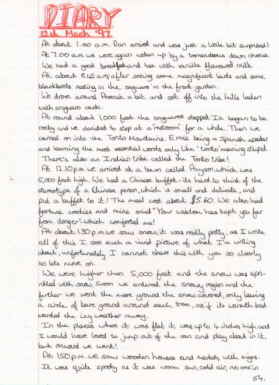 DIARY
12th March '97.
At about 1.00 a.m. Dan arrived and was just a little bit surprised!
At 7.00 a.m. we were again woken up by a tremendous dawn chorus.
We had a great breakfast and tea with vanilla flavoured milk.
At about 8.45 a.m. after seeing some magnificent birds and some
blackbirds nesting in the in the front garden.
We drove around Phoenix a bit and set off into the hills laden
with
At around about 1,000 foot the stopped. I began to be
rocky and we decided to stop at a 'restroom' for a while. Then we
carried on into the Tonto Mountains. Emma being a Spanish speaker
and learning the most essential words only like 'tonto' meaning stupid.
There's also an Indian tribe called the Tonto tribe!
At 12.10 p.m. we arrived at a town called Payson, which was
5,000 foot high. We had a Chinese buffet. It's hard to think of the
stereotype of a Chinese person, which is small and delicate, and
put a buffet to it! The meal cost about $5.60. We also had
fortune cookies and mine said 'Your wisdom has kept you far
from danger', which comforted me!
At about 1.30 p.m. we saw snow, it was really pretty, as I write
all of this I see such a vivid picture of what I'm writing
about, unfortunately I cannot share this with you so clearly
so let's move on.
We were higher than 5,000 foot and the snow was
with snow. Soon we entered the snowy region and the
further we went the more ground the snow covered, only leaving
a circle of bare ground around each tree, as if its warmth had
warded the icy weather away.
In the places where it was flat it was up to 4 inches high and
I would have loved to jump out of the van and play about in it,
but onward we went!
At 1.50 p.m. we saw wooden houses and nearby with signs.
It was quite spooky as it was warm sun, cold air, no one in